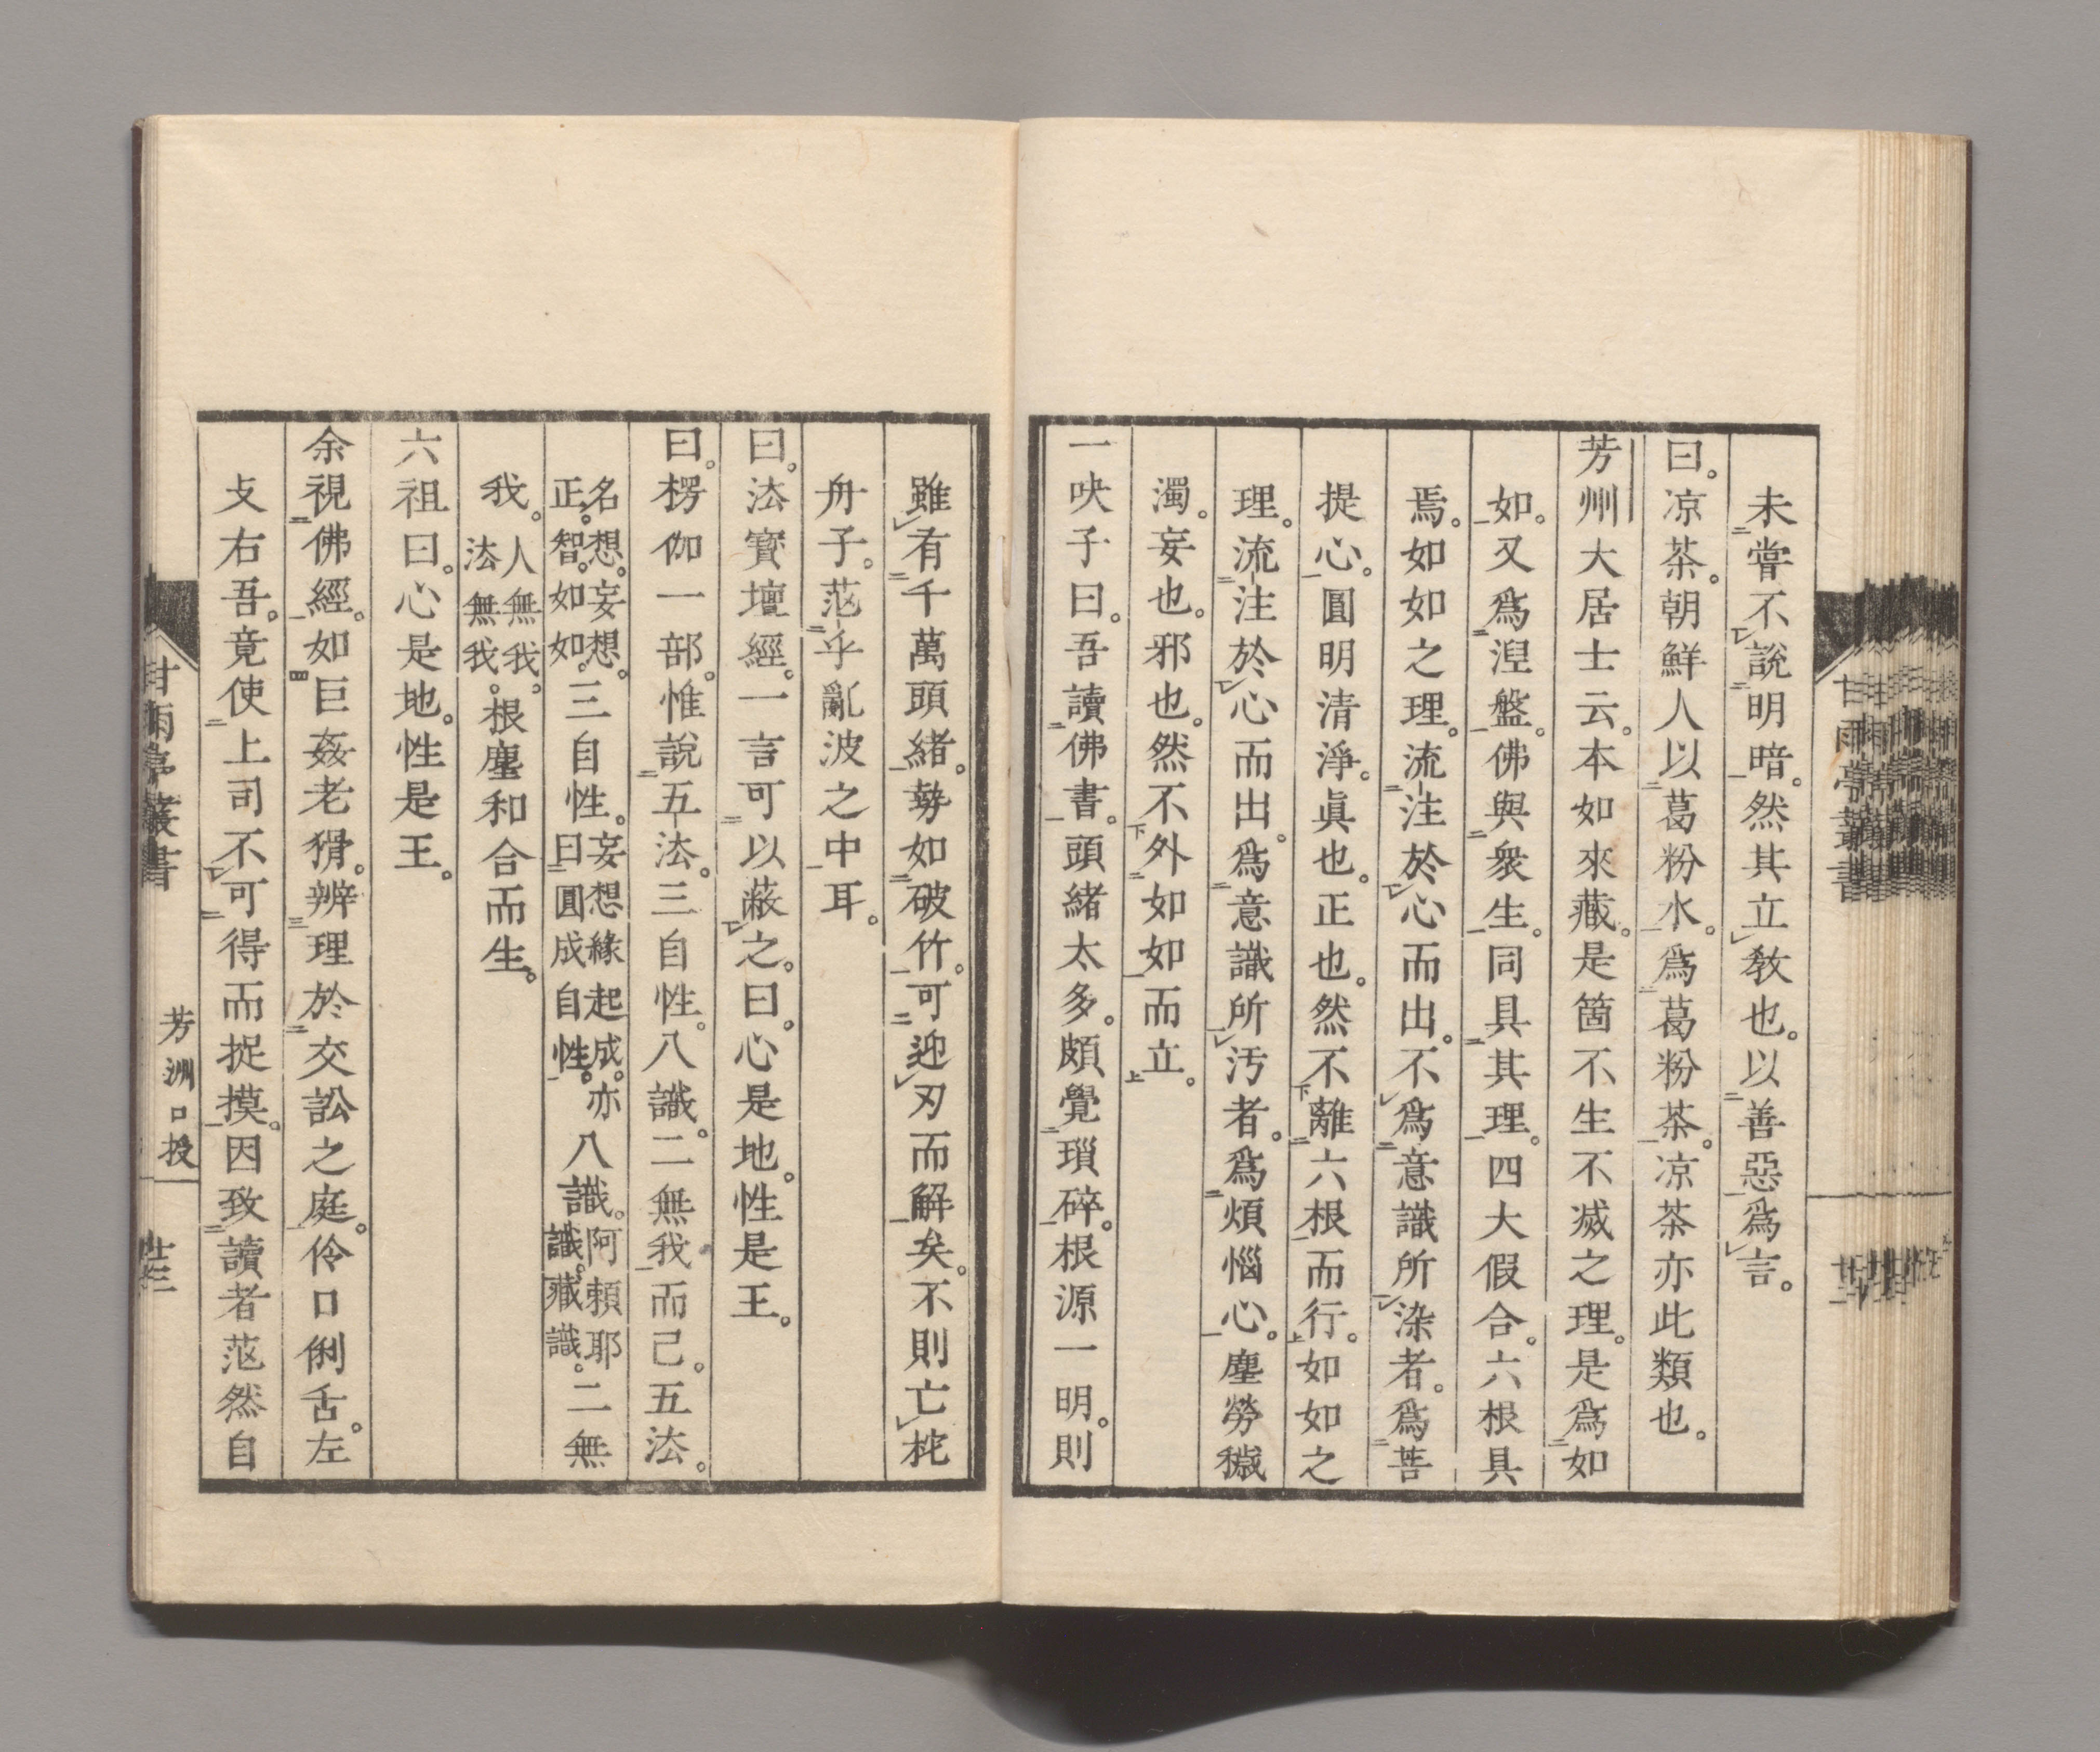 未嘗不說明暗。然其立敎也。以善惡爲言。
曰。凉茶。朝鮮人以葛粉水。爲葛粉茶。凉茶亦此類也。
芳州大居士云。本如來藏。是箇不生不滅之理。是爲如
如。又爲湼盤。佛與衆生。同具其理。四大假合。六根具
焉。如如之理。流注於心而出。不爲意識所染者。爲菩
提心。圓明清淨。眞也。正也。然不離六根而行。如如之
理。流注於心而出。爲意識所汚者。爲煩惱心。塵勞穢
濁。妄也。邪也。然不外如如而立。
一吷子曰。吾讀佛書。頭緒太多。頗覺瑣碎。根源一明。則
雖有千萬頭緒。勢如破竹。可迎刃而解矣。不則亡柁
舟子。茫乎亂波之中耳。
曰。法寶壇經。一言可以蔽之。曰。心是地。性是王。
曰。楞伽一部。惟說五法。三自性。八識。二無我而已。五法。
名想。妄想。正智。如如。三自性。妄想緣起成。亦曰圓成自性。八識。阿賴耶識。藏識。二無
我。人無我。法無我。根塵和合而生。
六祖曰。心是地。性是王。
余視佛經。如巨姦老猾。辨理於交訟之庭。伶口俐舌。左
攴右吾。竟使上司不可得而捉摸。因致讀者茫然自
甘雨亭叢書
芳洲口授
廿三
甘雨亭叢書